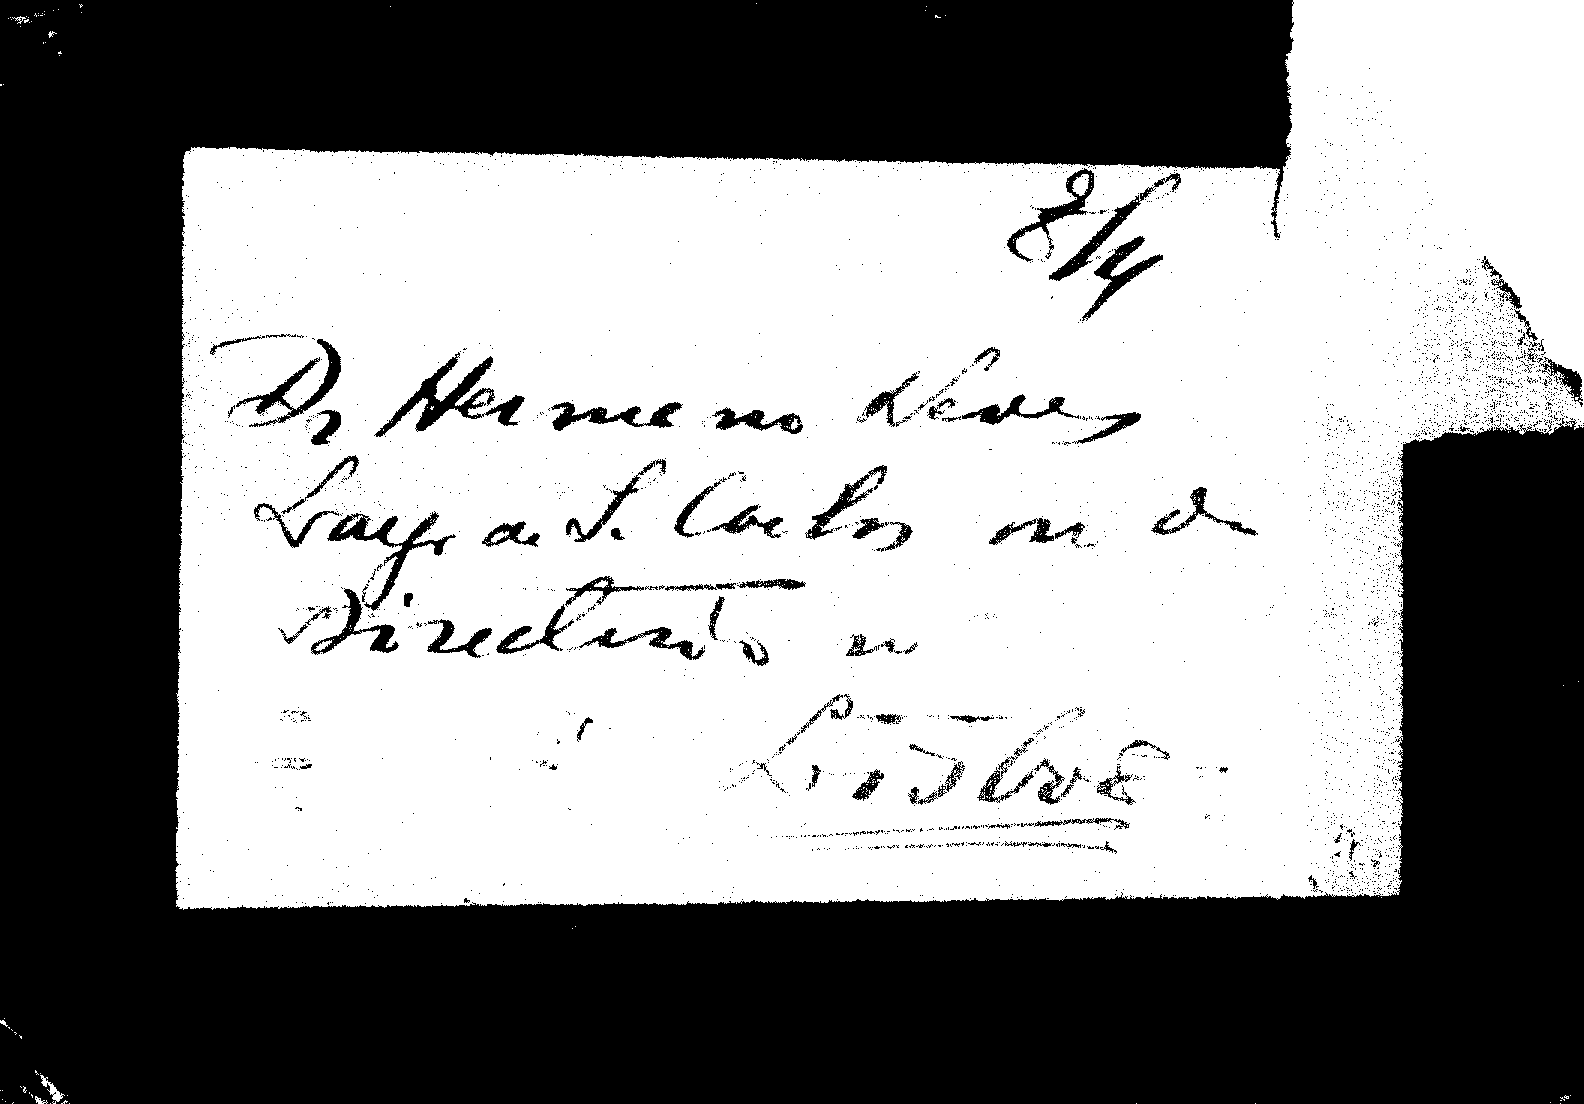 E/M
Dr Hermano Neves
Largo de S. Carlos ou do
Directorio
Lisboa